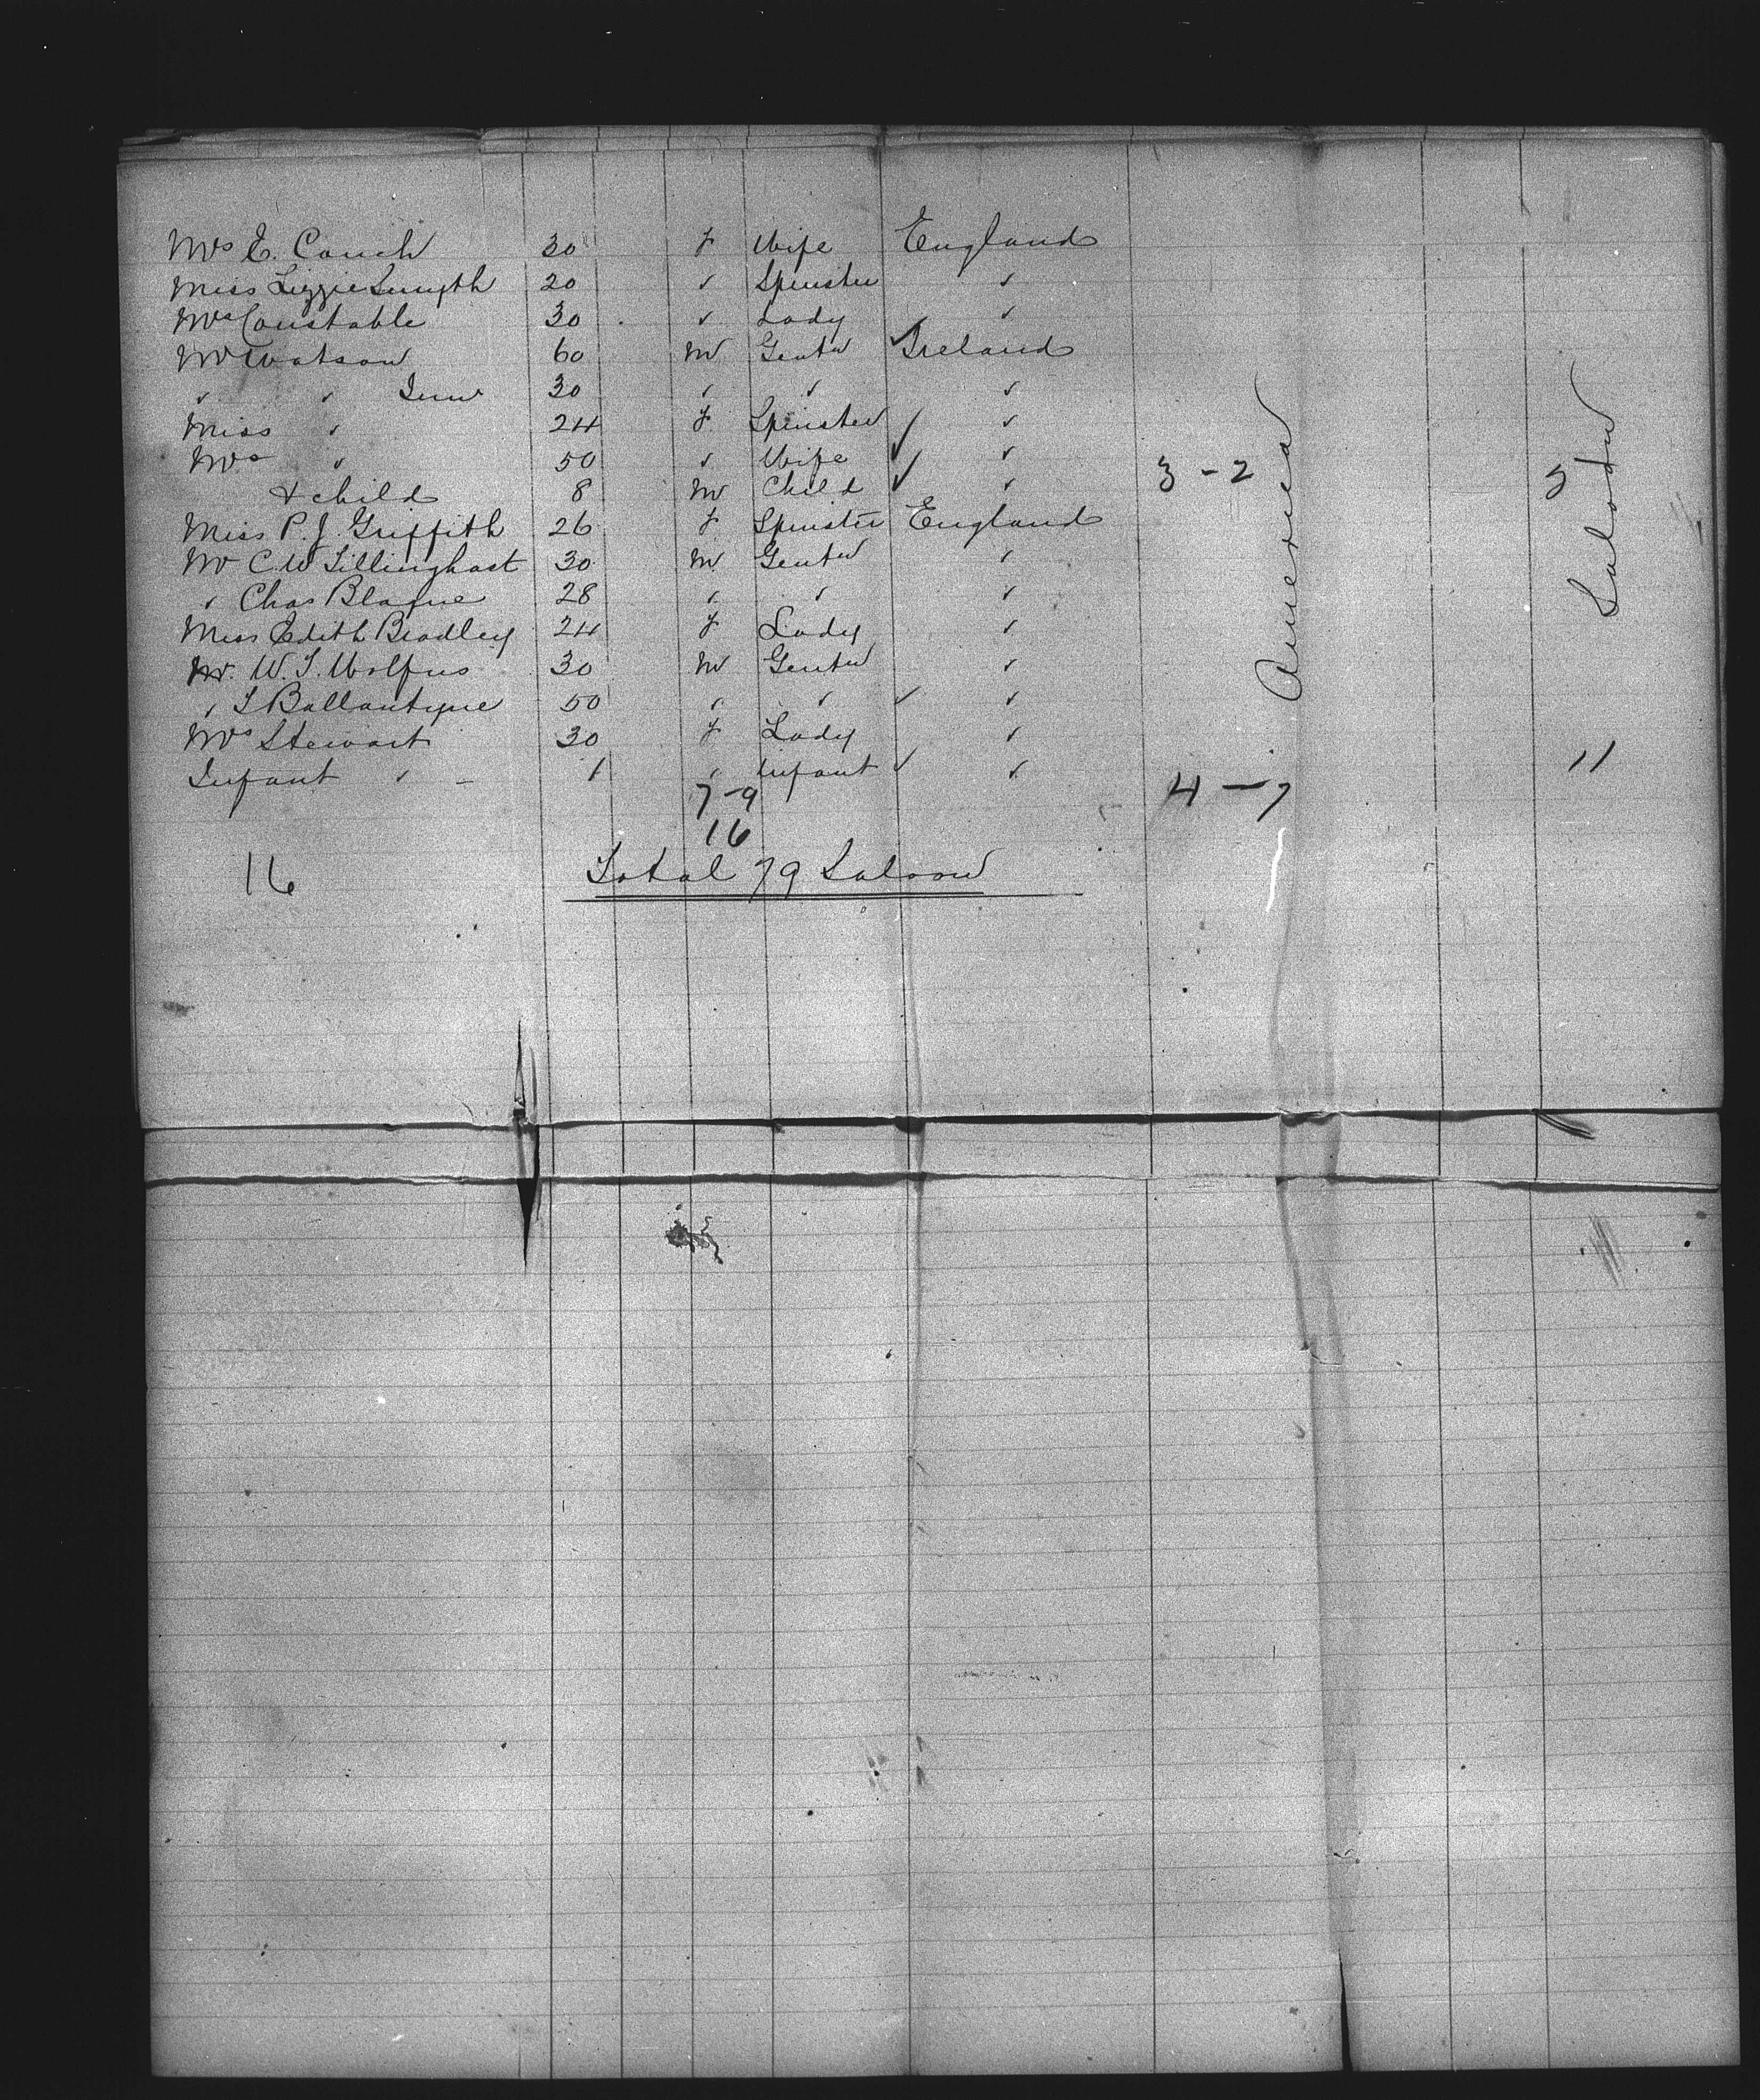 Mrs E. Couch 30 f Wife England
Miss Lizzie Smyth 20 " Spinster "
Mrs Constable 30 " Lady "
Mr Watson 60 M Gentn Ireland
" " Junr 30 " " "
Miss " 24 f Spinster "
Mrs " 50 " Wife "
& child 8 M Child " 3 - 2 5
Miss P. J. Griffith 26 f Spinster England
Mr C. W. Tillinghast 30 M Gentn "
" Chas Blague 28 " " "
Miss Edith Bradley 24 f Lady "
Mr. W. T. Wolfus 30 M Gentn "
" T Ballantyne 50 " " "
Mrs Stewart 30 f Lady "
Infant " - 1 " Infant " 4 - 7 11
America
Saloon
7-9
16
16 Total 79 Saloon